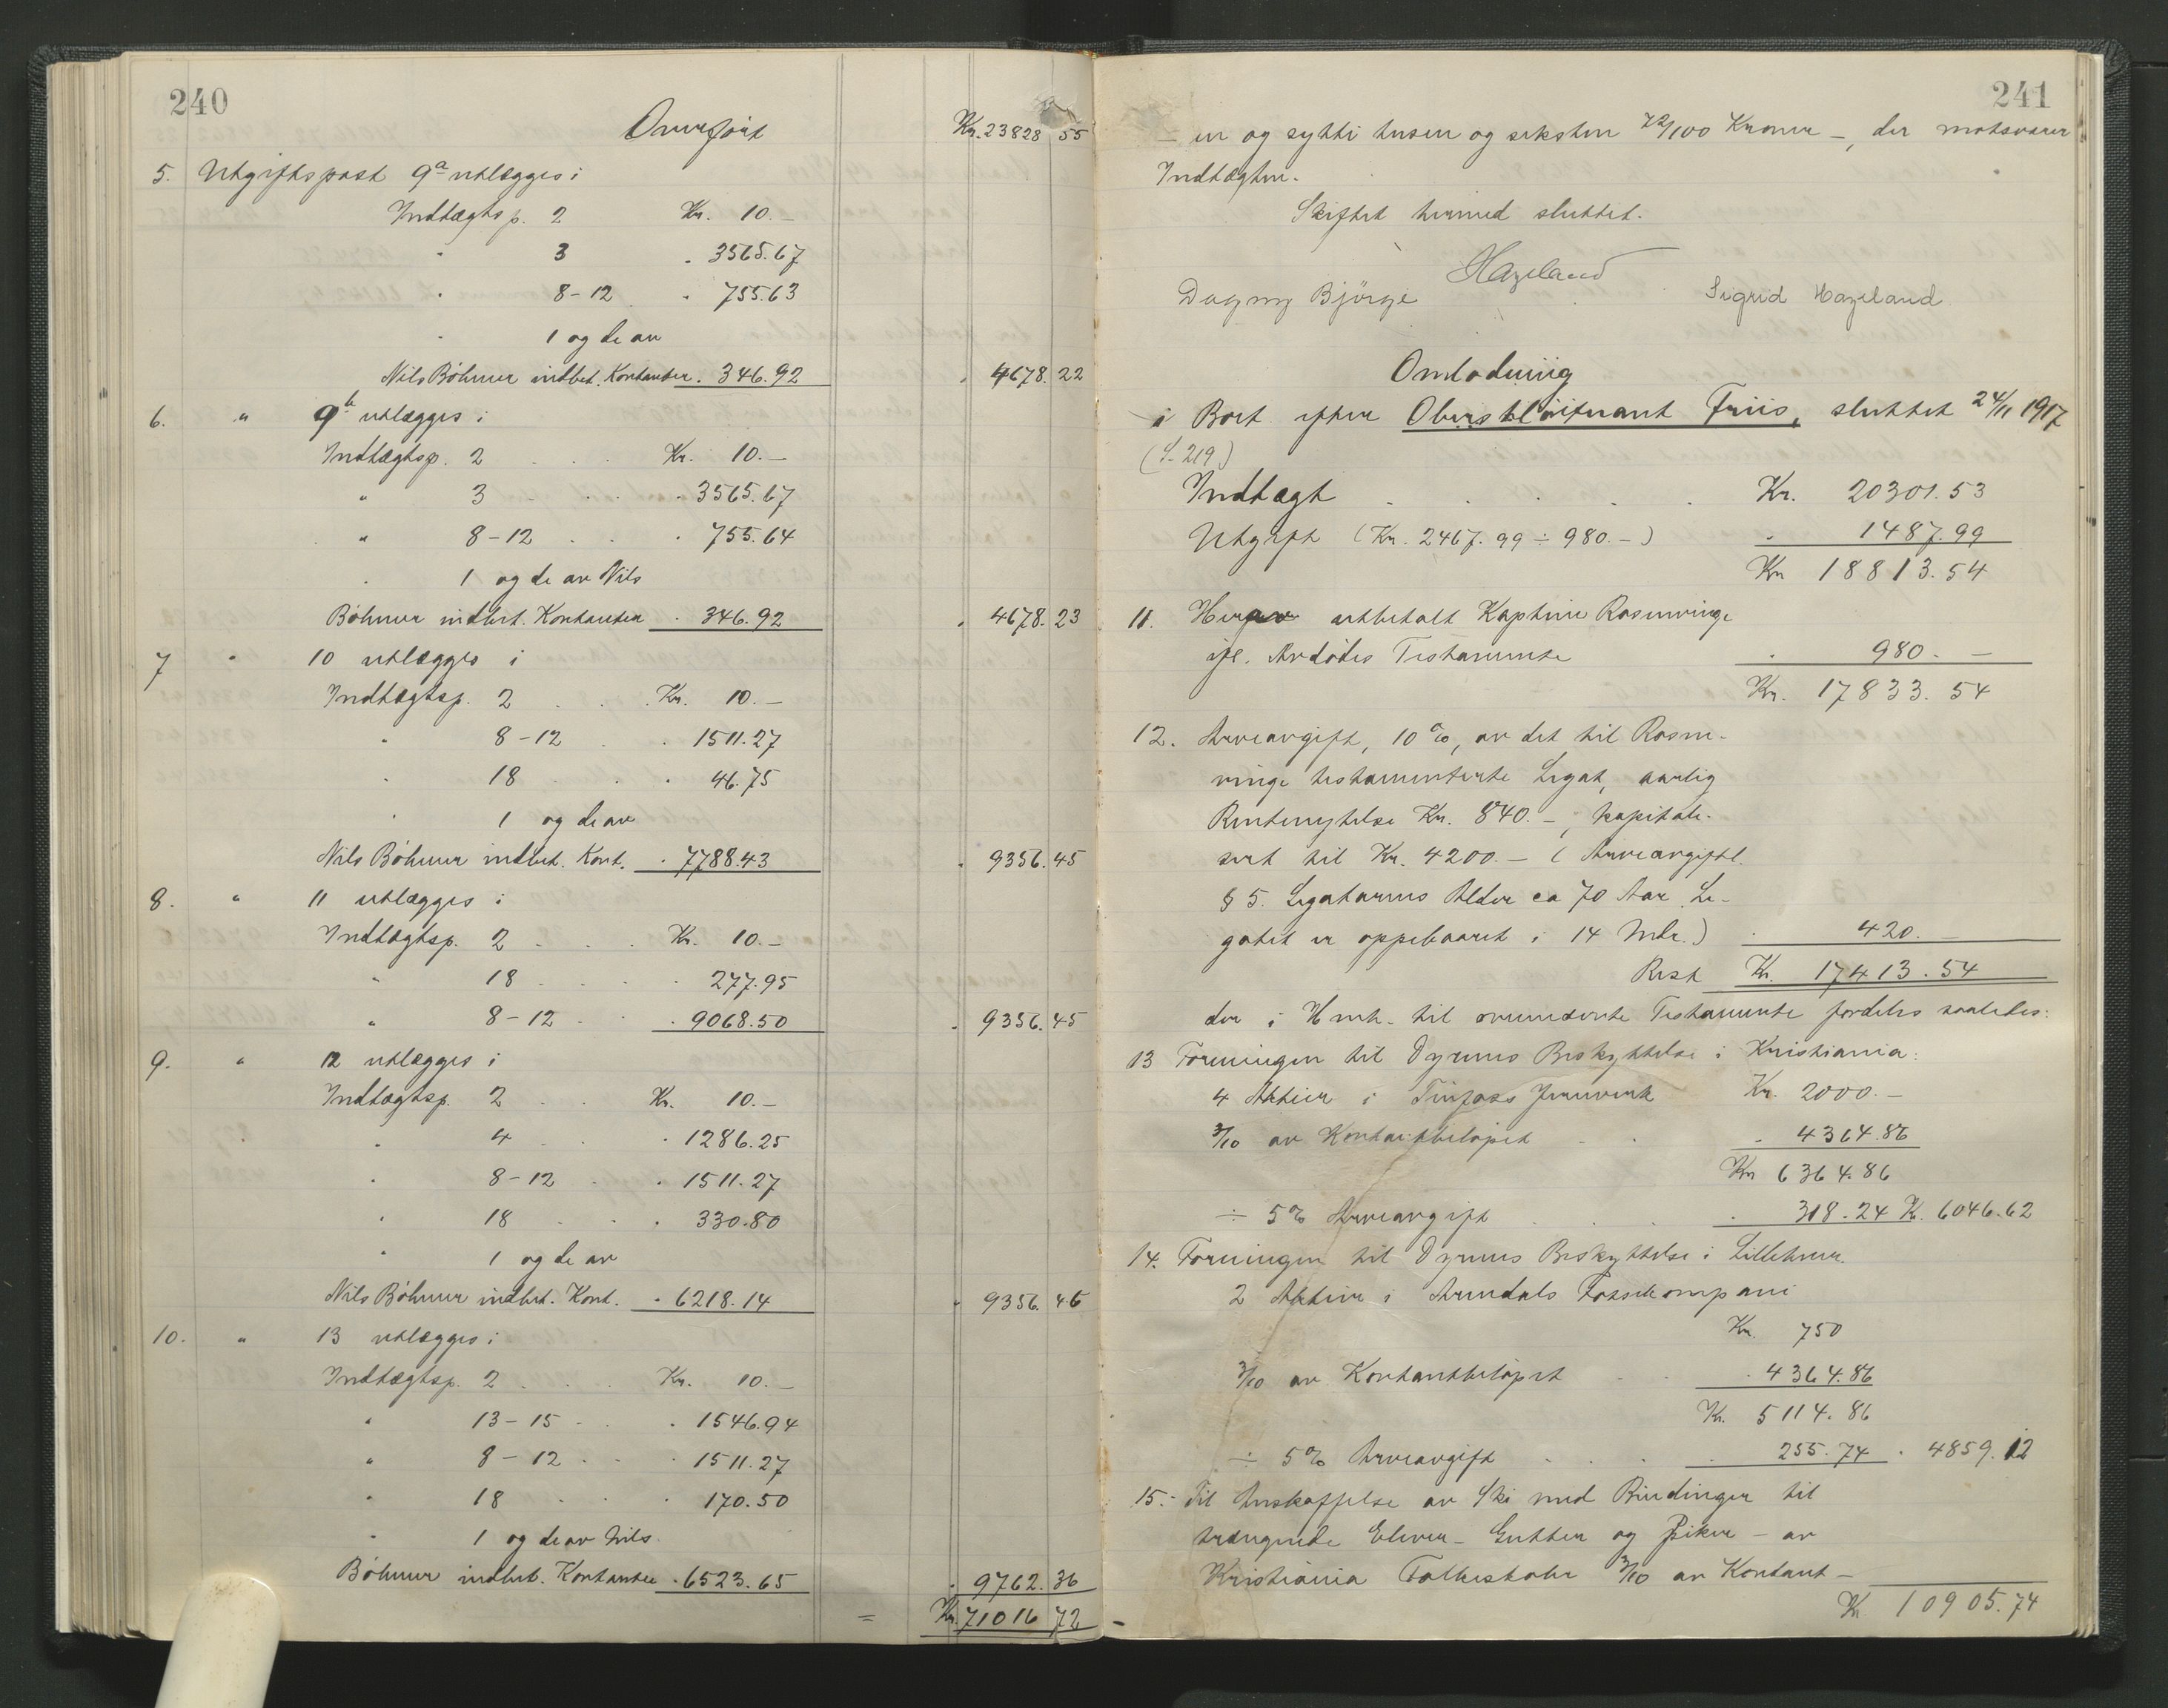 240
Overført Kr. 23828 55
5. Utgiftspost 9a utlægges i
Indtægtsp. 2 Kr. 10.-
" 3 " 3565.67
" 8-12 " 755.63
" 1 og de av
Nils Böhmer indbet. Kontanter " 346.92 " 4678.22
6. " 9b utlægges i
Indtægtsp. 2 Kr. 10.-
" 3 " 3565.67
" 8-12 " 755.64
" 1 og de av Nils
Böhmer indbet. Kontanter " 346.92 " 4678.23
7 " 10 utlægges i
Indtægtsp. 2 Kr. 10.-
" 8-12 " 1511.27
" 18 " 46.75
" 1 og de av
Nils Böhmer indbet. Kont. " 7788.43 " 9356.45
8. " 11 utlægges i
Indtægtsp. 2 Kr. 10.-
" 18 " 277.95
" 8-12 " 9068.50 " 9356.45
9. " 12 utlægges i
Indtægtsp. 2 Kr. 10.-
" 4 " 1286.25
" 8-12 " 1511.27
" 18 " 330.80
" 1 og de av
Nils Böhmer indbet. Kont. " 6218.14 " 9356.46
10. " 13 utlægges i
Indtægtsp. 2 Kr. 10.-
" 13-15 " 1546.94
" 8-12 " 1511.27
" 18 " 170.50
" 1 og de av Nils
Böhmer indbet. Kontanter " 6523.65 " 9762.36
= Kr. 71016 72
241
- en og sytti tusen og seksten 72/100 Kroner -, der motsvarer
Indtægten.
Skiftet hermed sluttet.
Hazeland
Dagny Björge Sigrid Hazeland
Omlodning
i Boet efter Oberstløitnant Friis, sluttet 24/11 1917
(S. 219)
Indtægt Kr. 20301.53
Utgift (Kr. 2467.99 ÷ 980.-) " 1487.99
Kr 18813.54
11. Herav utbetalt Kaptein Rosenvinge
ifl. Avdødes Testamente " 980.-
Kr. 17833.54
12. Arveavgift, 10%, av det til Rosen-
vinge testamenterte Legat, aarlig
Rentenytelse Kr. 840.-, kapitali-
sert til Kr. 4200.- (Arveavgiftl.
§ 5. Legatarens Alder ca 70 Aar. Le-
gatet er oppebaaret i 14 Mdr.) " 420.-
Rest Kr. 17413.54
der i Henh. til ovennævnte Testamente fordeles saaledes:
13 Foreningen til Dyrenes Beskyttelse i Kristiania:
4 Aktier i Tinfoss Jernverk Kr. 2000.-
3/10 av Kontantbeløpet " 4364.86
Kr 6364.86
÷ 5% Arveavgift " 318.24 Kr. 6046.62
14. Foreningen til Dyrenes Beskyttelse i Lillehmr.
2 Aktier i Arendals Fossekompani
Kr. 750
3/10 av Kontantbeløpet " 4364.86
Kr. 5114.86
÷ 5% Arveavgift 255.74 " 4859.12
15.- Til Anskaffelse av Ski med Bindinger til
trængende Elever - Gutter og Piker - av
Kristiania Folkeskoler 3/10 av Kontant-
Kr 10905.74